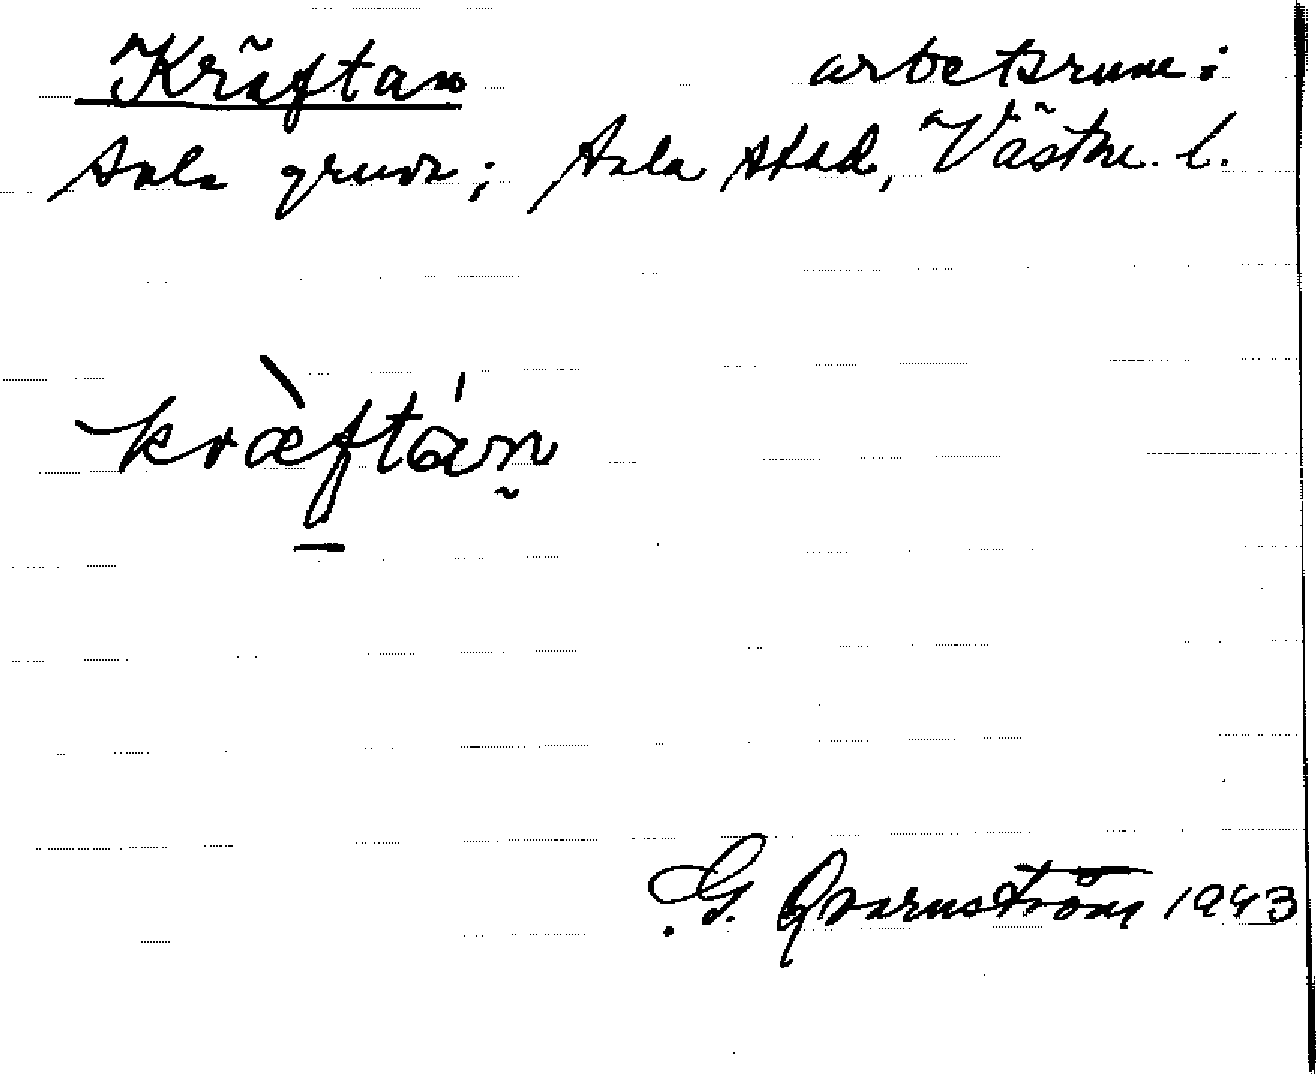 Kräftan arbetsrum i
Sala gruva; Sala stad, Västm. l.
kræftan
G. Qvarnström 1943